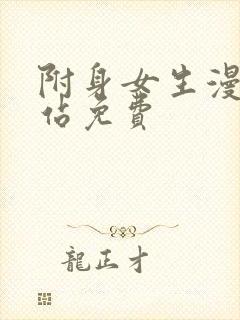 附身女生漫
佔免費
龍正才